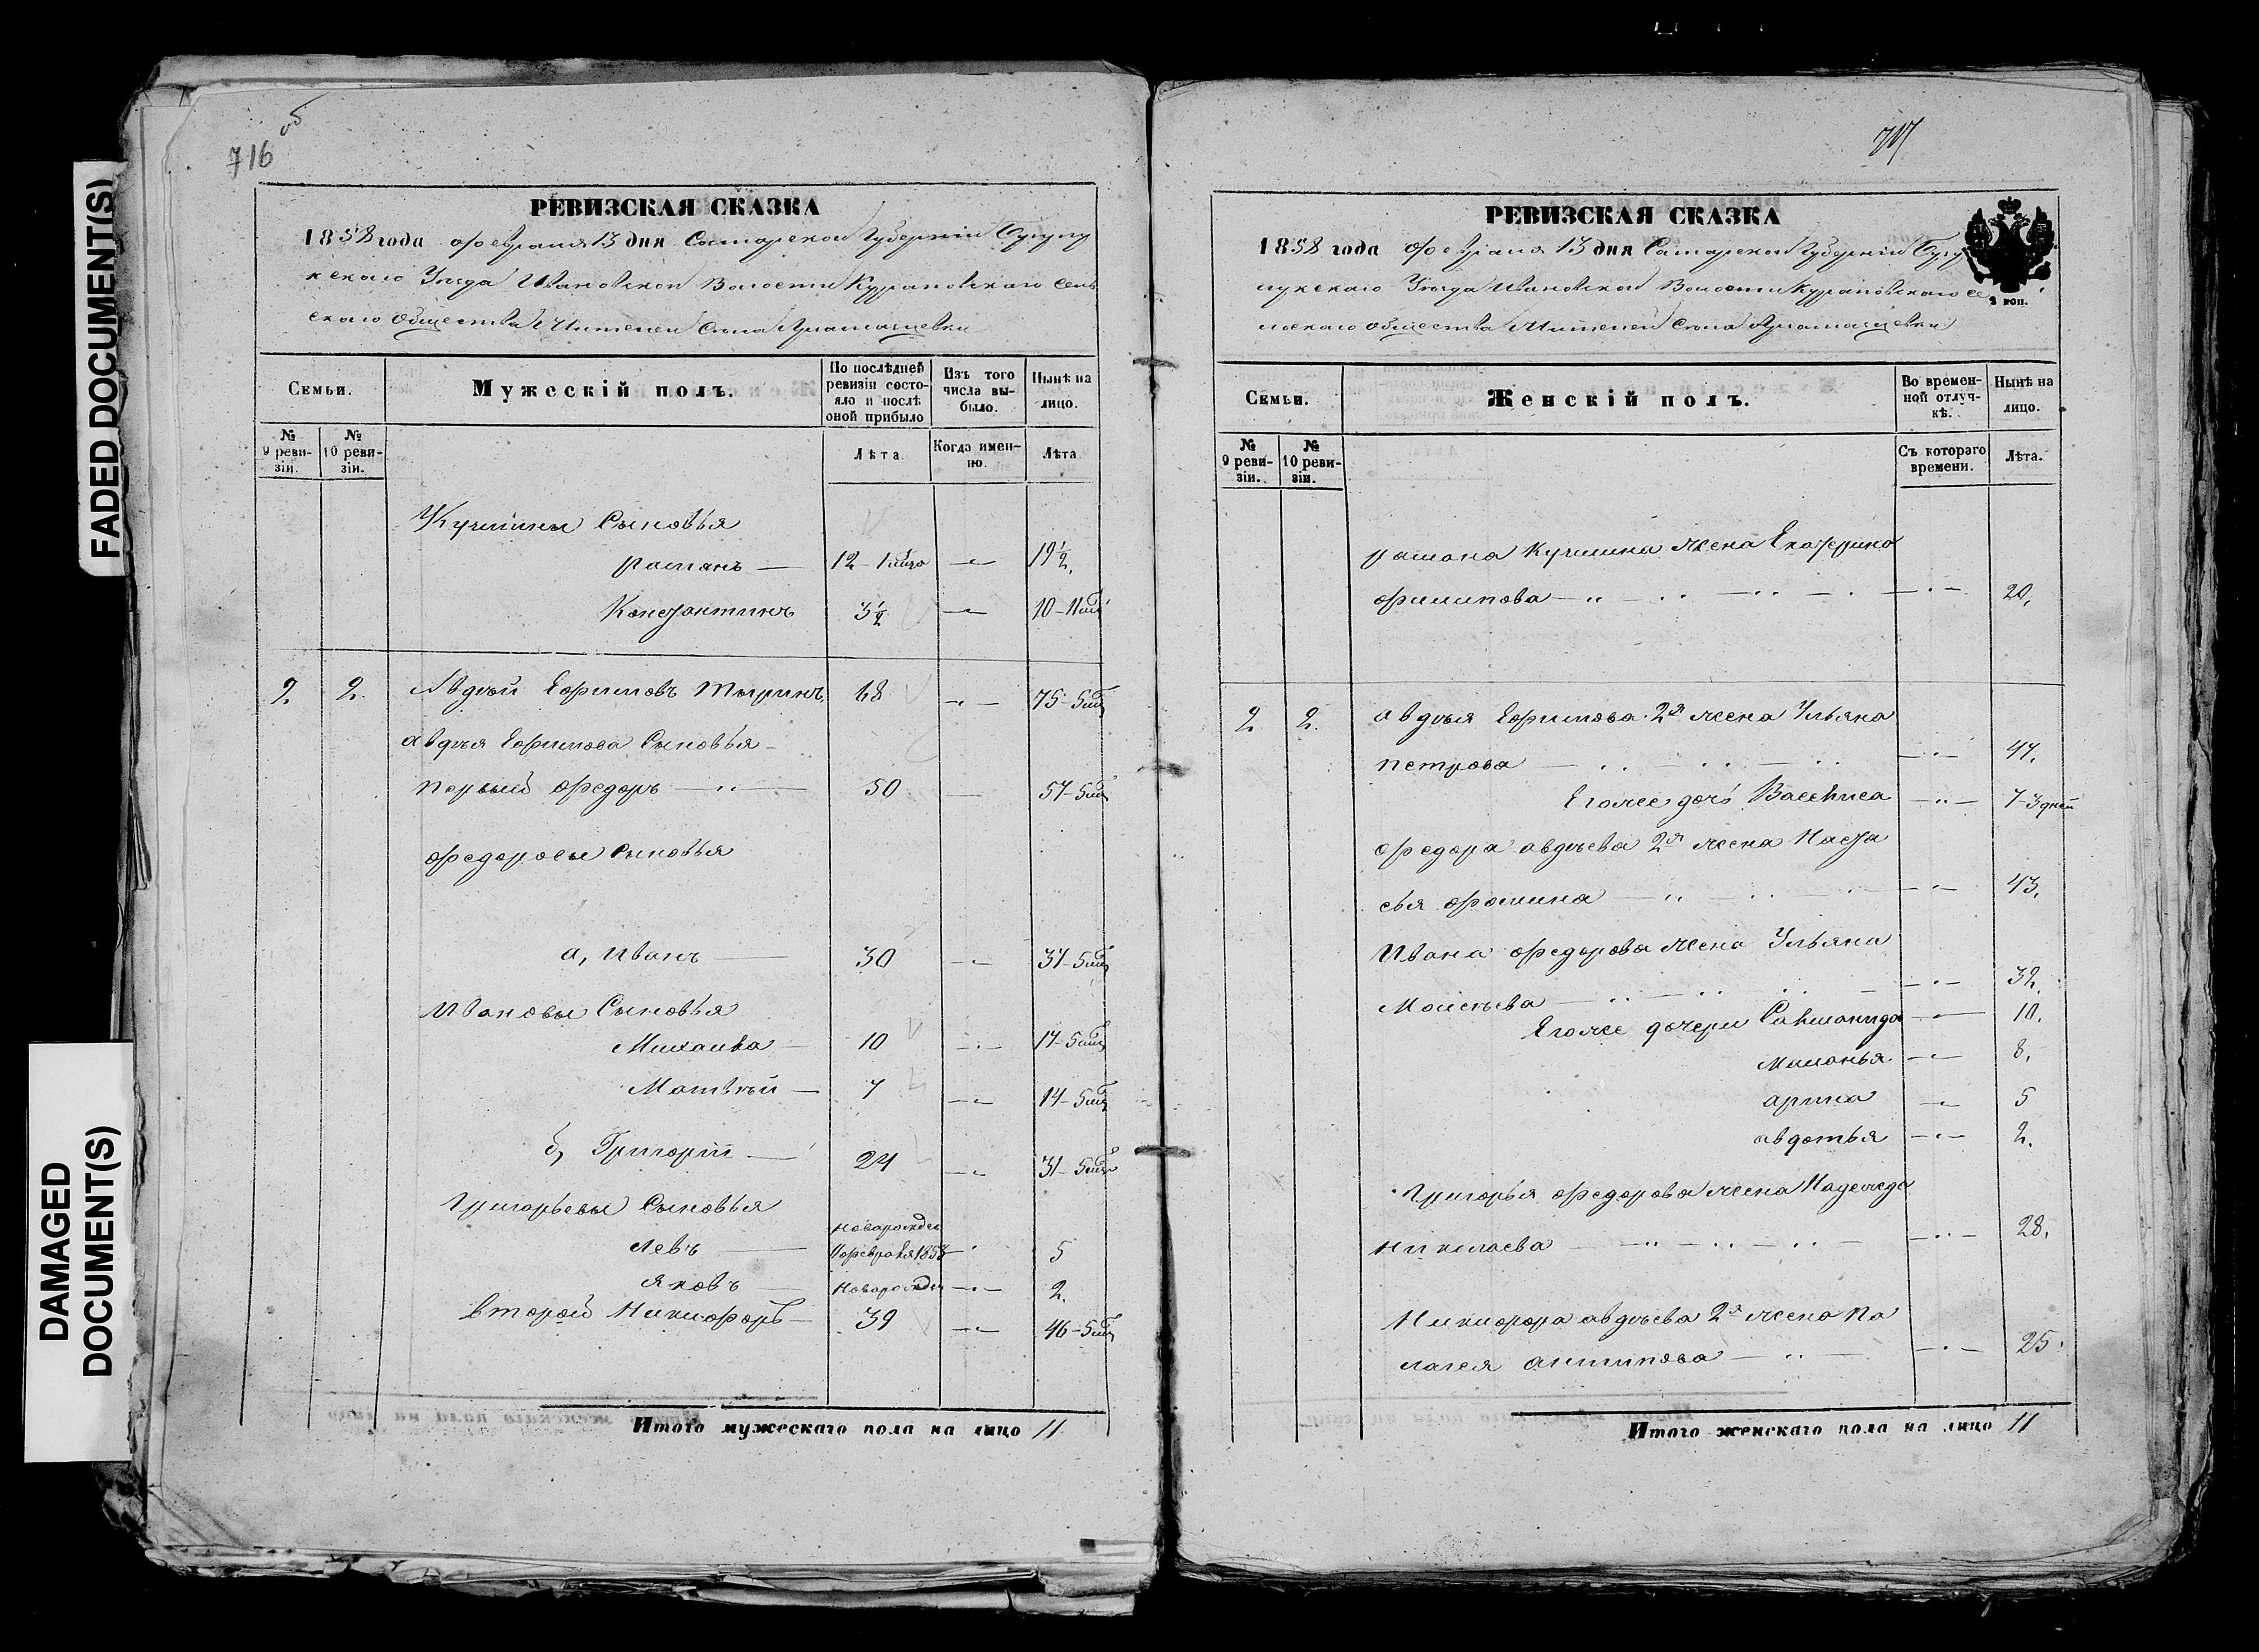 FADED DOCUMENT(S)
DAMAGED
DOCUMENT(S)
716 об
РЕВИЗСКАЯ СКАЗКА
1858 года февраля 13 дня Самарской Губернiи Бузулу
кскаго Уѣзда Ивановской Волости Сель
скаго Общества Жителей Села
Семьи.
Мужескiй полъ.
По послѣдней ревизiи состояло и послѣ оной прибыло
Изъ того числа выбыло.
Нынѣ на лицо.
№ 9 ревизiи.
№ 10 ревизiи.
Лѣта
Когда именно.
Лѣта
Кузмины Сыновья
Раманъ — 12 - 1 — 19 ½.
Констянтинъ 3 ½ — 10 - 11
2 2. Авдѣй Ефимовъ 68 — 75 - 5
авдѣя Ефимова Сыновья
первый федоръ — 50 — 57 - 5
федоровы Сыновья
а, Иванъ — 30 — 37 - 5
Ивановы Сыновья
Михаила — 10 — 17 - 5
Матвѣй — 7 — 14 - 5
б, Григорiй — 24 — 31 - 5
Григорьевы Сыновья
Левъ — новорожден февраля — 5
Яковъ — новорожден — 2.
второй Никифоръ — 39 — 46 - 5
Итого мужескаго пола на лицо 11
717
РЕВИЗСКАЯ СКАЗКА
2 коп.
1858 года февраля 13 дня Самарской Губернiи Бузу
лукскаго Уѣзда Ивановской Волости Се
льскаго общества Жителей Села
Семьи.
Женскiй полъ.
Во временной отлучкѣ.
Нынѣ на лицо.
№ 9 ревизiи.
№ 10 ревизiи.
Съ котораго времени.
Лѣта.
рамана Кузмина жена Екатерина
филипова — 20.
2 2. авдѣя Ефимова 2я жена Ульяна
петрова — 47.
Егоже дочь Василиса — 7 - 3 дней
федора авдѣева 2я жена Наста
сья фомина — 43.
Ивана федорова жена Ульяна
Моисѣева — 32.
Егоже дочери — 10.
Маланья — 8.
арина — 5
авдотья — 2.
Григорья федорова жена Надежда
николаева — 28.
Никифора авдѣева 2я жена Пе
лагея антипова — 25.
Итого женскаго пола на лицо 11